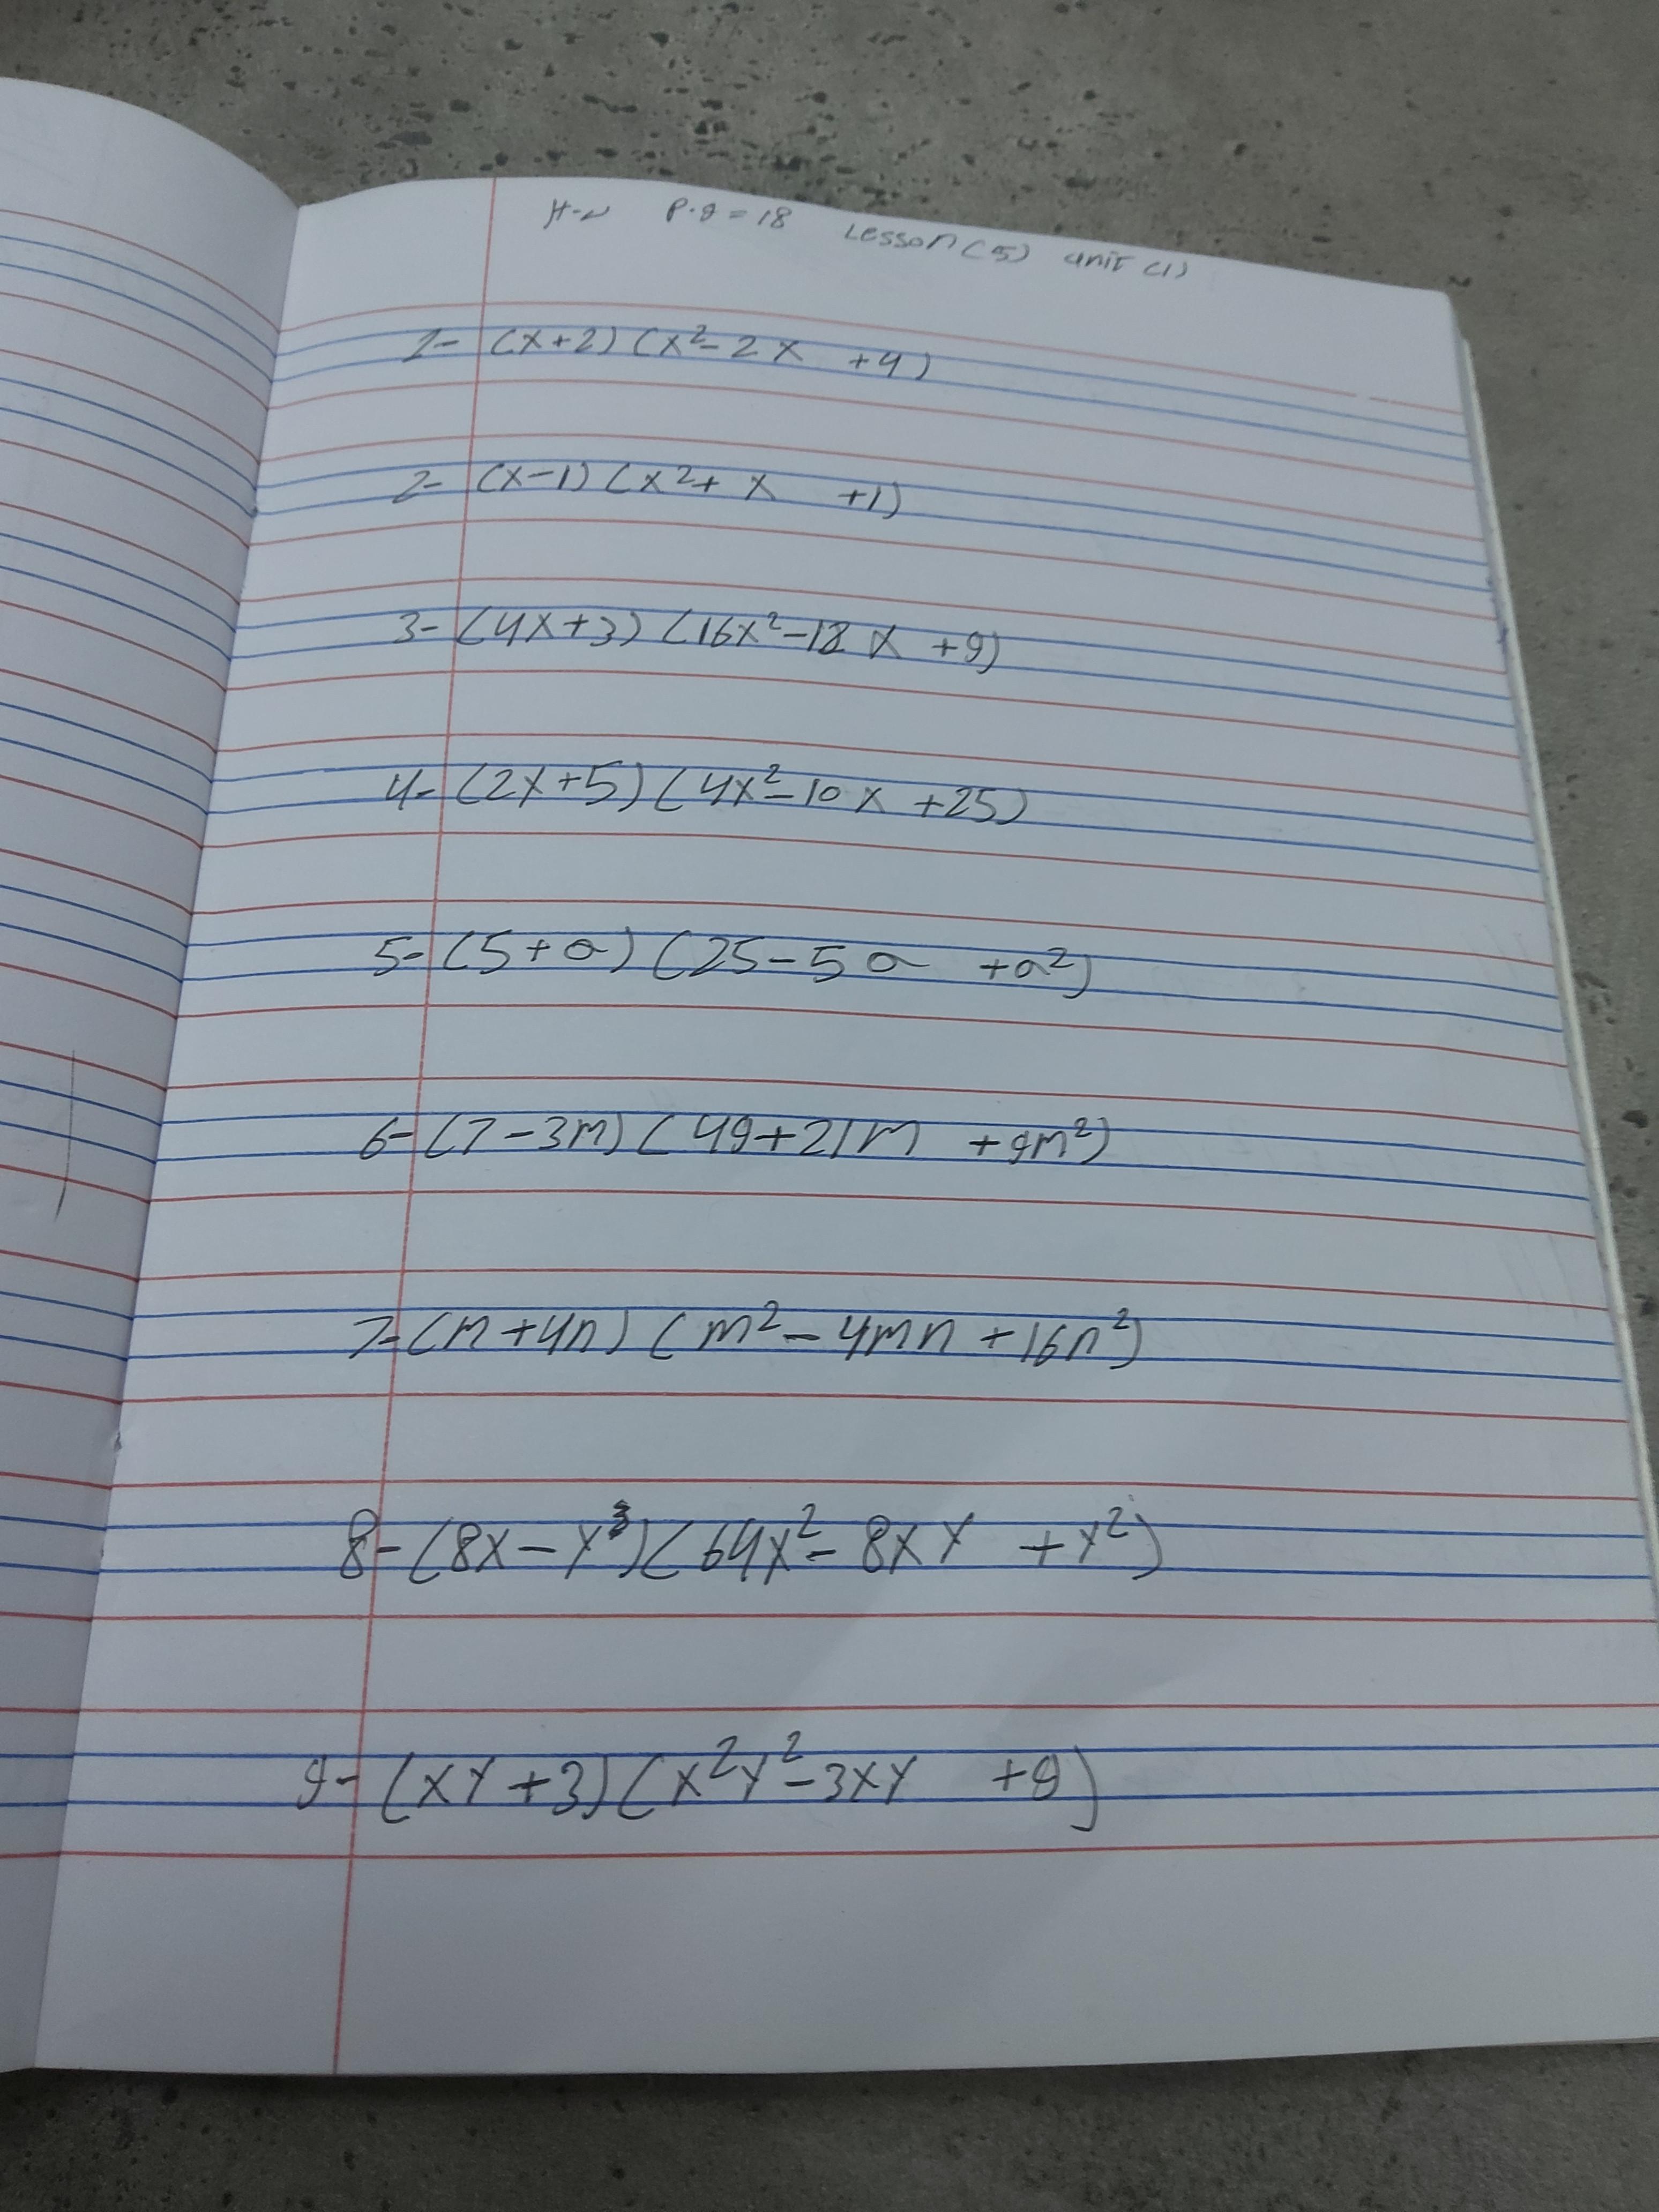 H-w P.g = 18 Lesson (5) unit (1)
1- (x+2) (x²- 2x +4)
2- (x-1) (x²+ x +1)
3- (4x+3) (16x²-12x +9)
4- (2x+5) (4x²-10x +25)
5- (5+a) (25-5a +a²)
6- (7-3m) (49+21m +9m²)
7- (m+4n) (m²-4mn+16n²)
8- (8x-y³) (64x²-8xy +y²)
9- (xy+3) (x²y²-3xy +9)